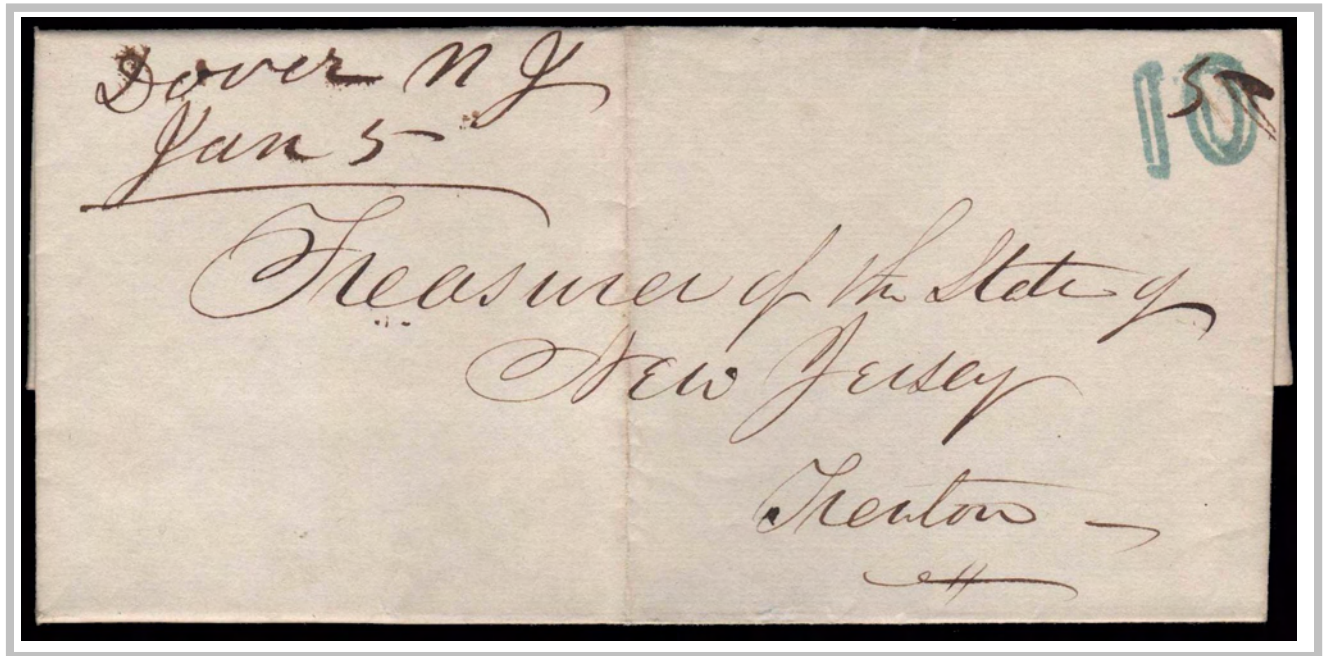 Dover N J
Jan 5
10
5
Treasurer of the State of
New Jersey
Trenton